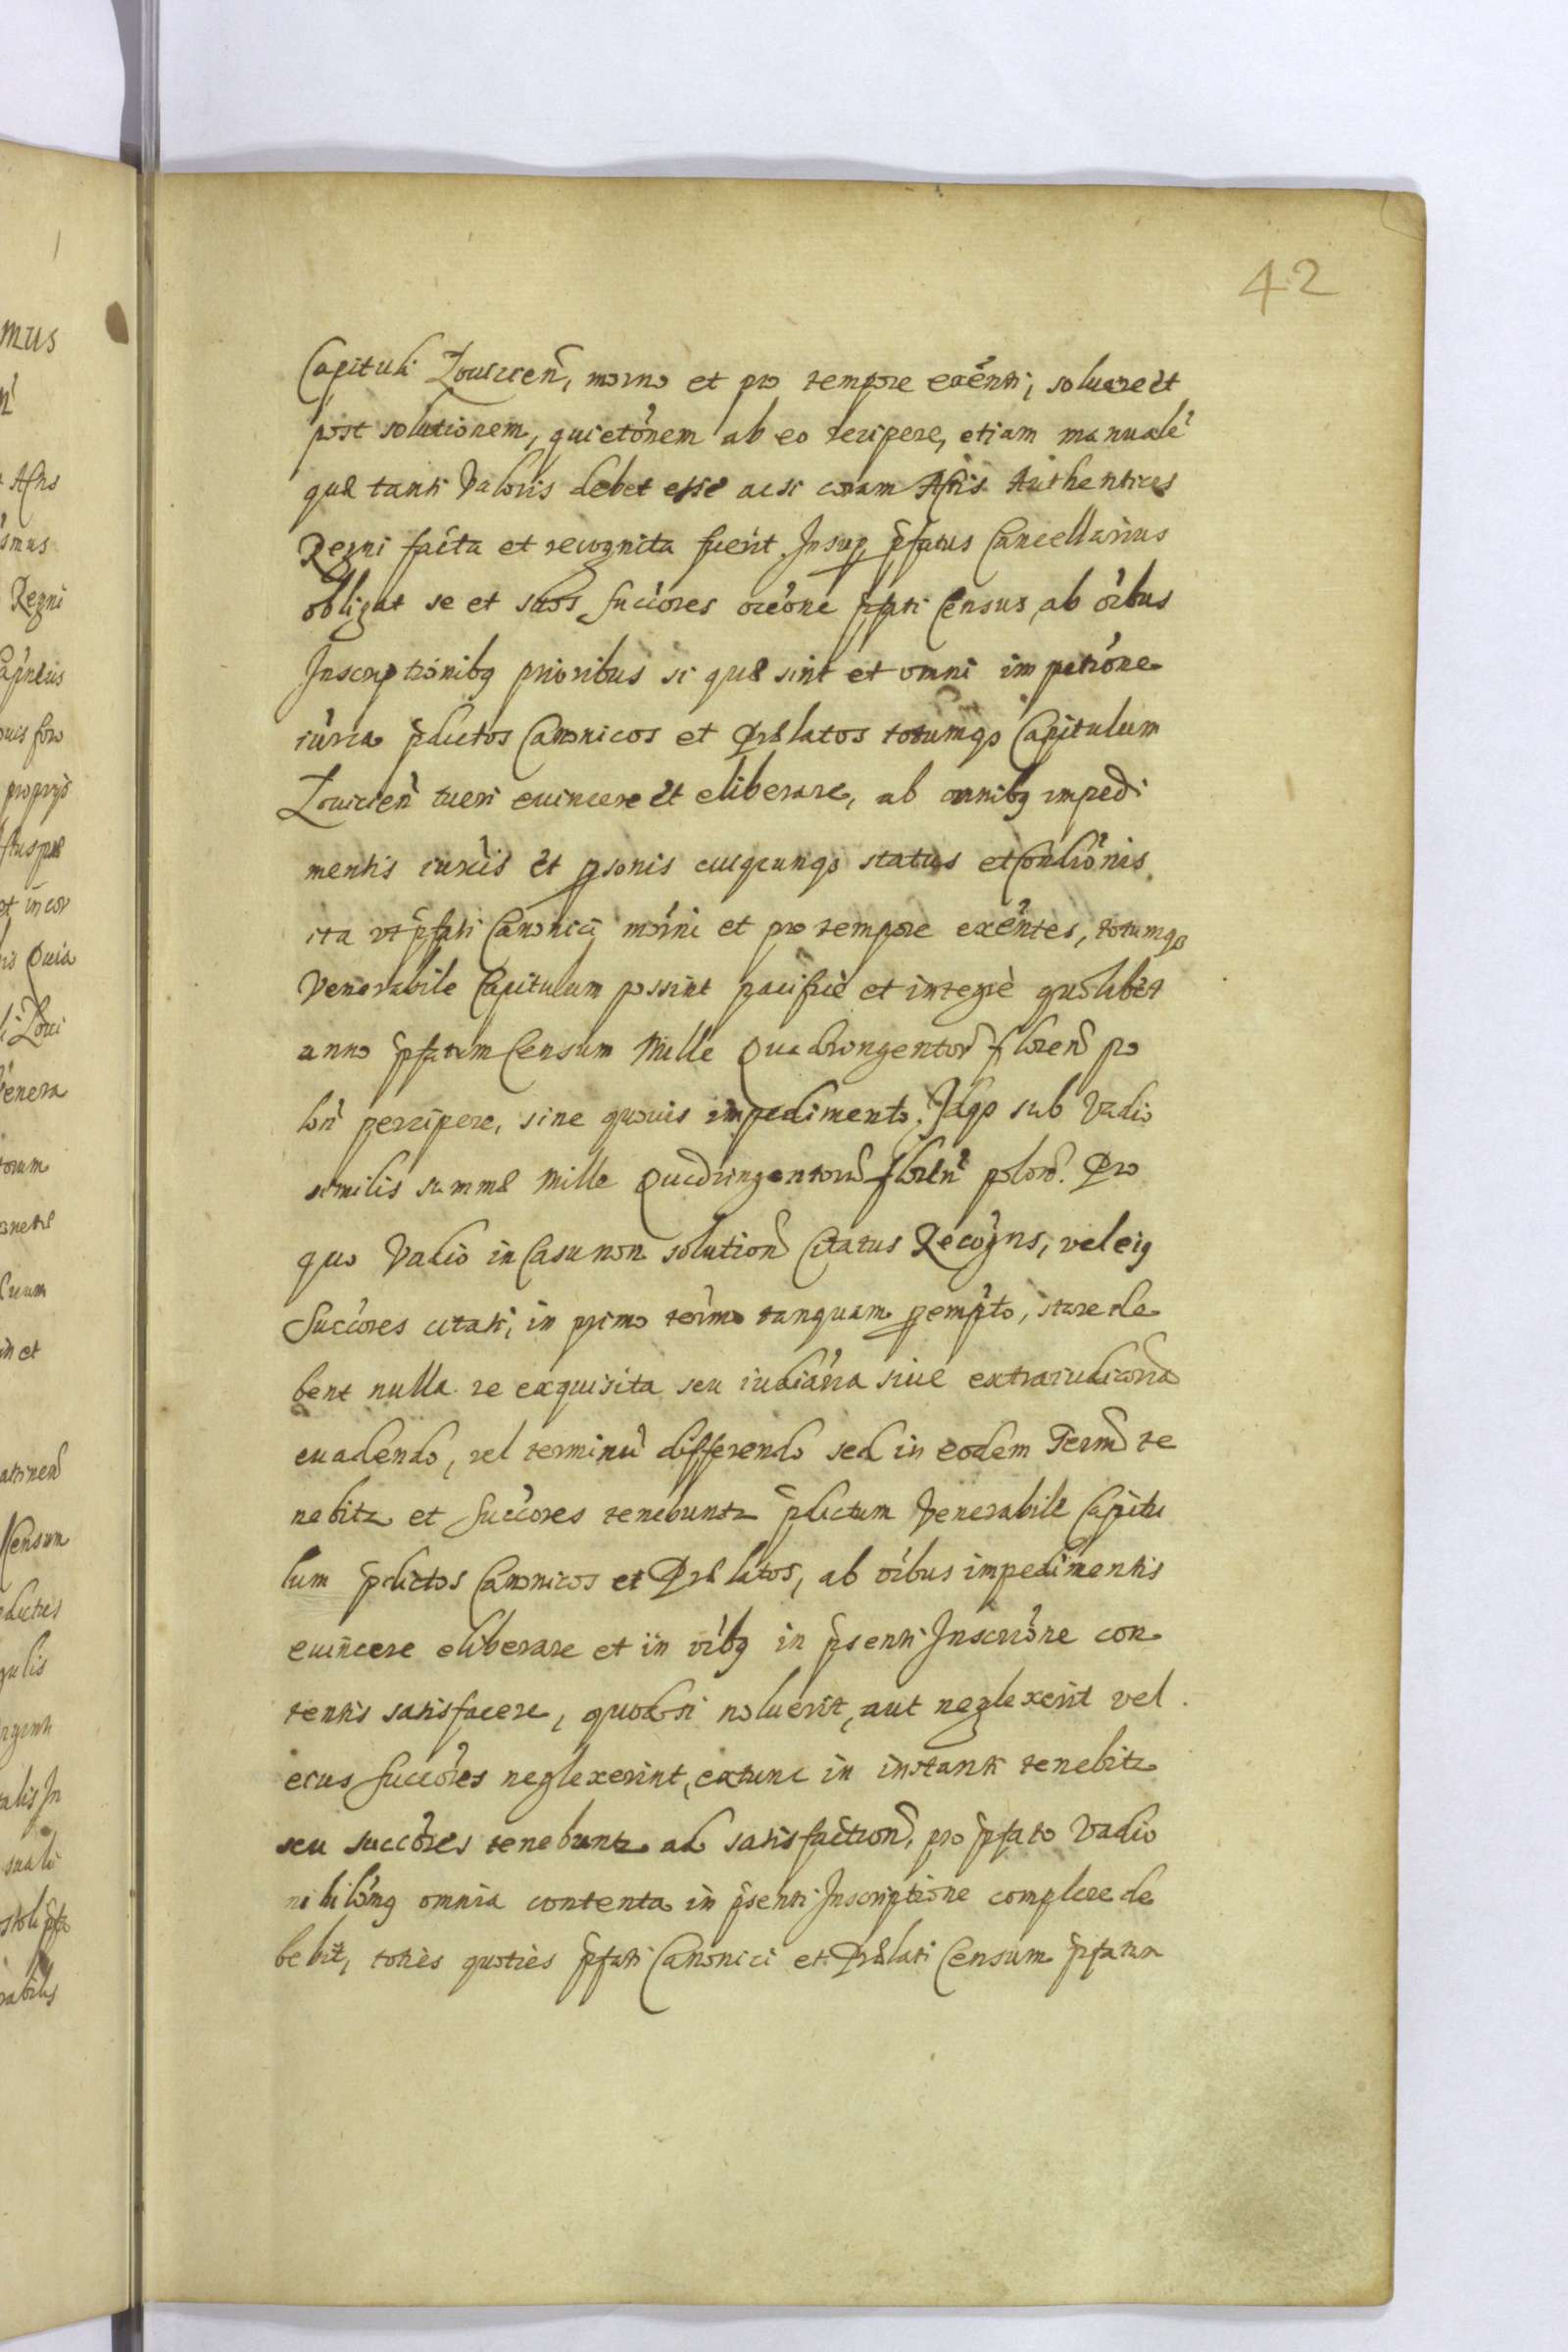 42
Capituli Łouicien̄, mor̄no et pro tempore exēnti, soluere et
post solutionem, quietōnem ab eo recipere, etiam manualē
quæ tanti Valoris debet esse ac si coram Actis Authenticis
Regni facta et recognita fuerit. Insup p̄fatus Cancellarius
obligat se et suos succ̄ores or̄eone p̄fati Census, ab oībus
Inscriptionibq prioribus si quæ sint et omni impetiōne
iur̄ca p̄dictos Canonicos et Prælatos totumqȝ Capitulum
Łouicien̄ tueri euincere et eliberare, ab omnibq impedi
mentis iurcīs et psonis cuiqcunqȝ status et Condiōnis
ita vt p̄fati Canonici mōrni et pro tempore exēntes, totumqȝ
Venerabile Capitulum possint pacificè et integrè quolibet
anno p̄fatum Censum Mille Quadringentor̄ floren̄ po
lon̄ percipere, sine quouis impedimento. Idqȝ sub Vadio
similis summæ Mille Quadringentorū floren̄ polon̄. Pro
quo Vadio in Casu non solution̄ Citatus Recogn̄s, vel eiq
Succ̄ores citati, in primo ter̄mo tanquam pemp̄to, stare de
bent nulla re exquisita seu iudiāria siue extraiudicar̄ia
euadendo, vel terminū differendo sed in eodem Term̄ te
nebitz et Succ̄ores tenebuntz p̄dictum Venerabile Capitu
lum p̄dictos Canonicos et Prælatos, ab oībus impedimentis
euincere eliberare et in oībq in p̄senti Inscriōne con
tentis satisfacere, quod si noluerit, aut neglexerit vel
eius succ̄ores neglexerint, extunc in instanti tenebitz
seu succ̄ores tenebuntz ad satisfaction̄, pro p̄fato Vadio
nihilōmq omnia contenta in p̄senti Inscriptione complere de
bebit, toties quoties p̄fati Canonici et Prælati Censum p̄fatum